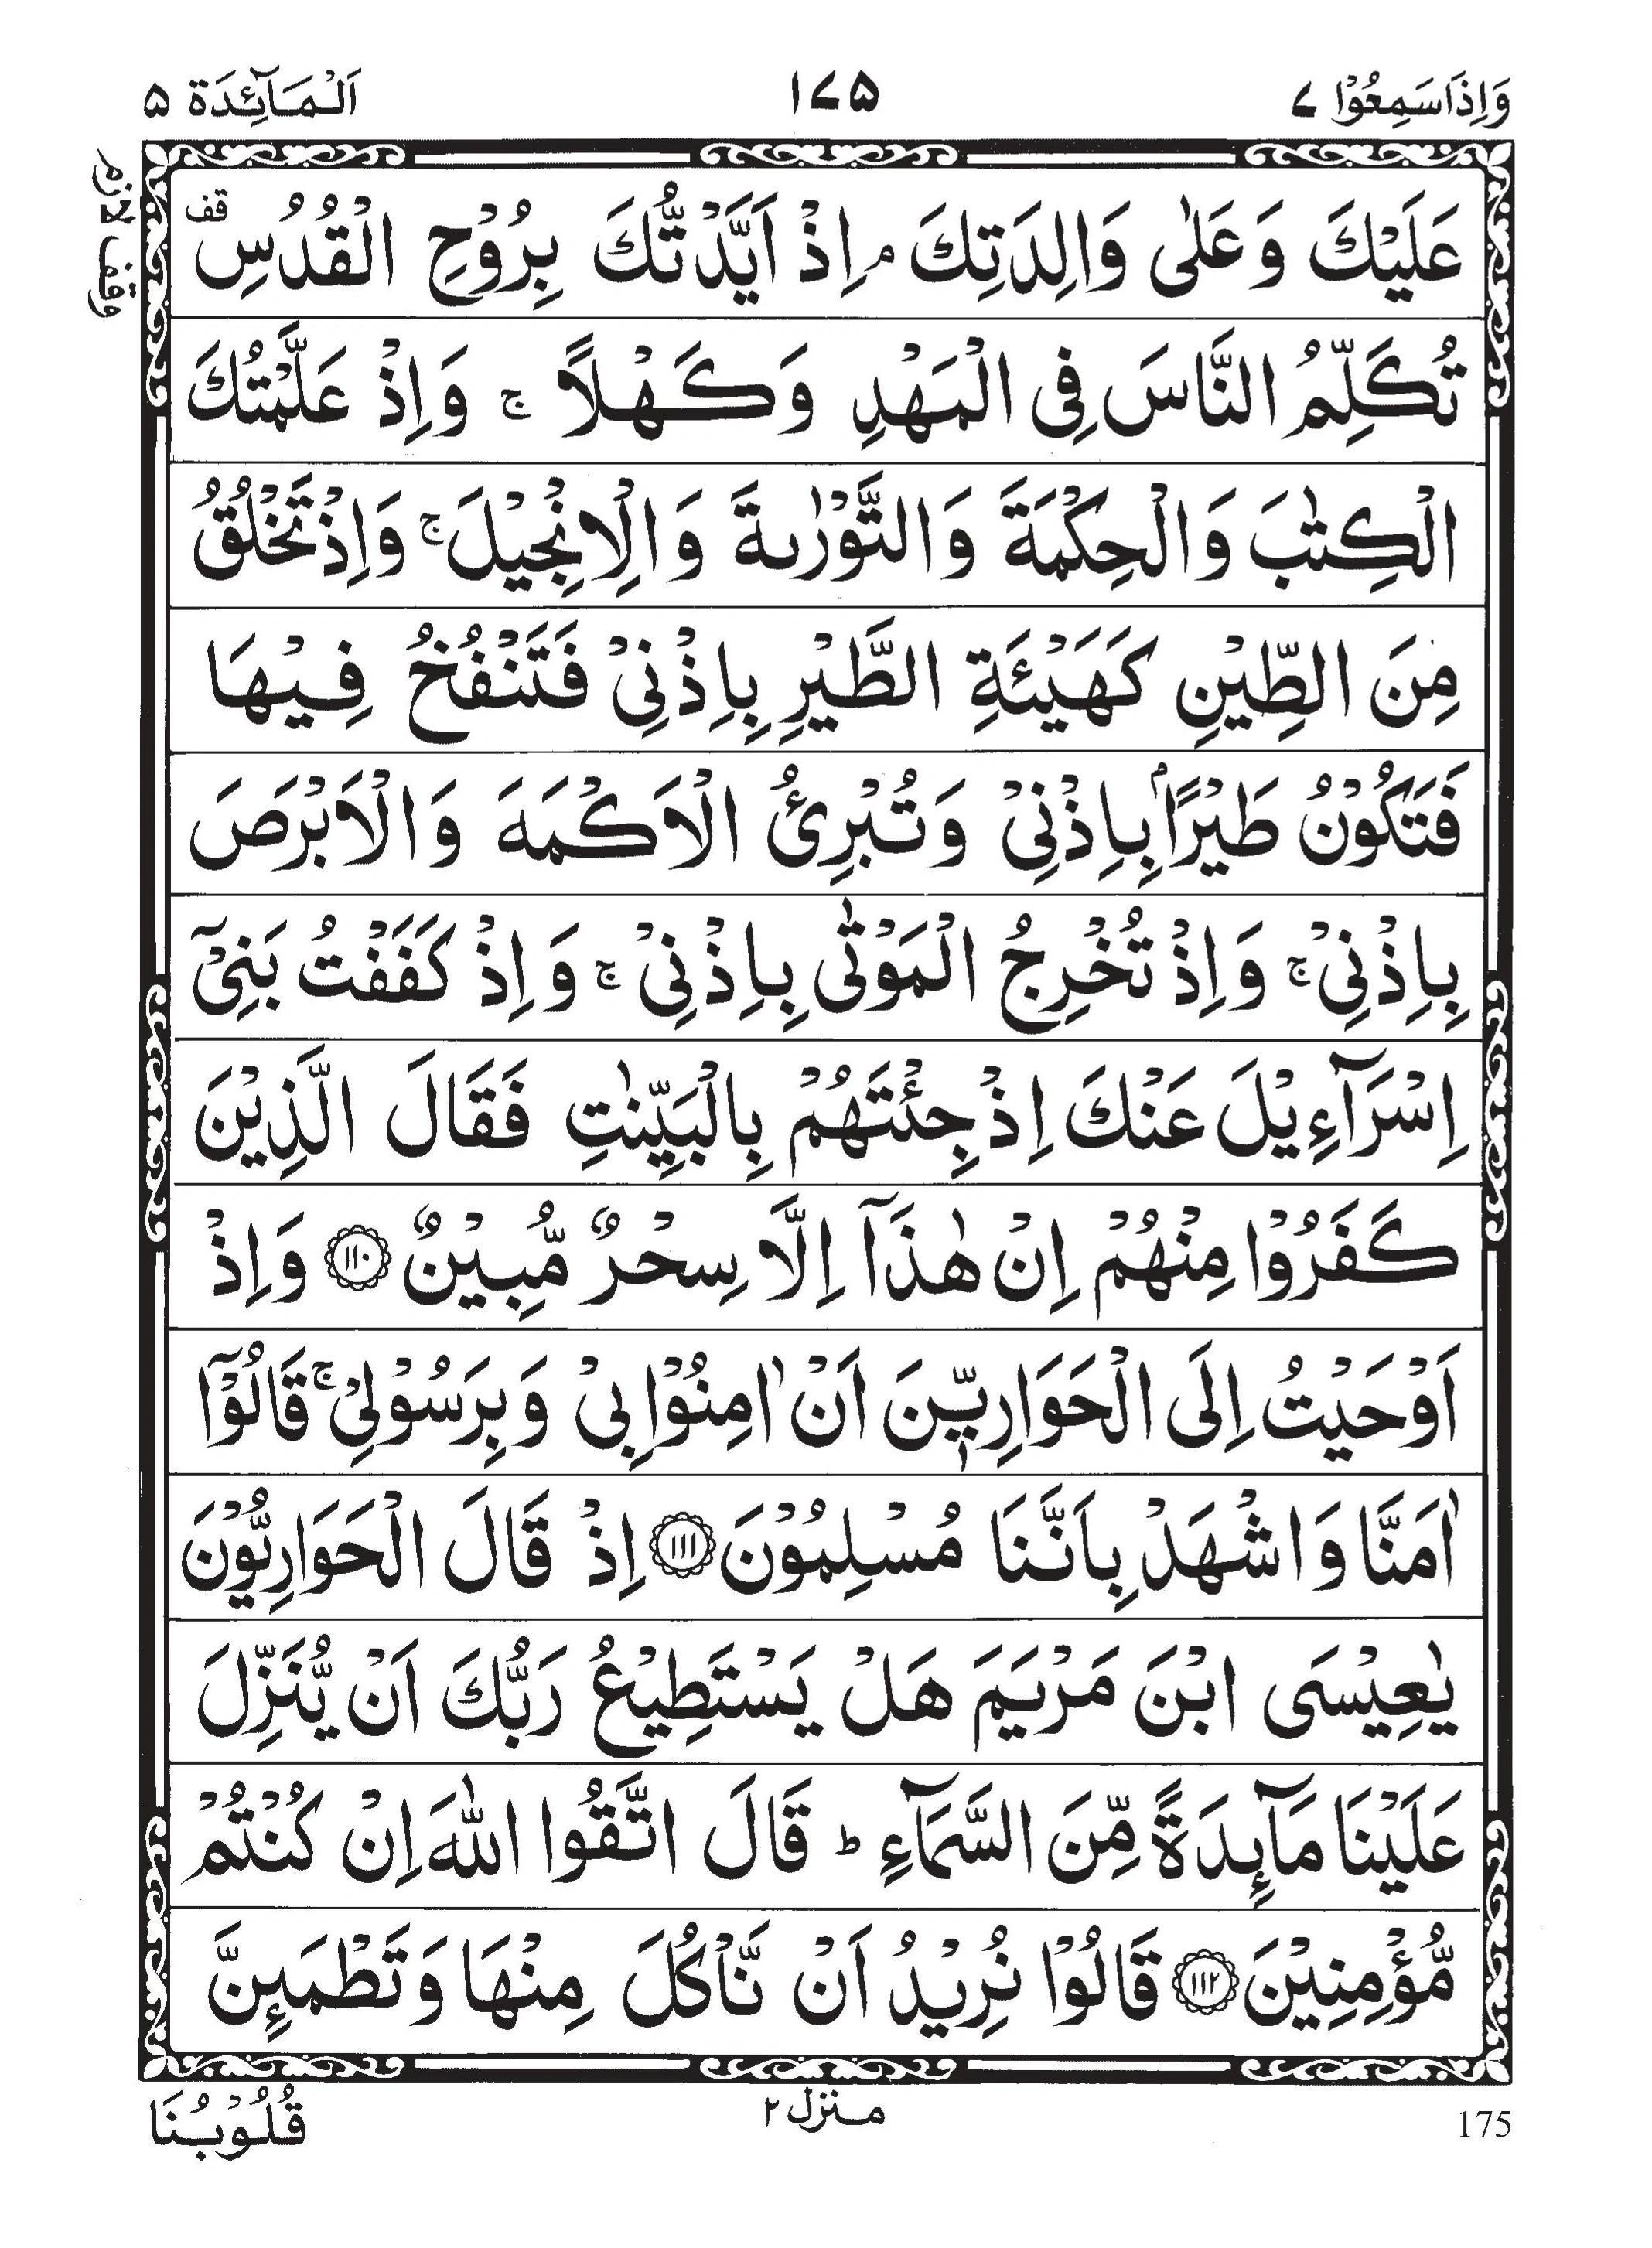 وَاِذَاسَمِعُوْا ٧
١٧٥
اَلْمَآئِدَة ٥
وقف لازم
عَلَيْكَ وَعَلٰى وَالِدَتِكَ ۘ اِذْ اَيَّدْتُّكَ بِرُوْحِ الْقُدُسِ قف
تُكَلِّمُ النَّاسَ فِى الْمَهْدِ وَكَهْلًا ۚ وَاِذْ عَلَّمْتُكَ
الْكِتٰبَ وَالْحِكْمَةَ وَالتَّوْرٰىةَ وَالْاِنْجِيْلَ ۚ وَاِذْ تَخْلُقُ
مِنَ الطِّيْنِ كَهَيْئَةِ الطَّيْرِ بِاِذْنِىْ فَتَنْفُخُ فِيْهَا
فَتَكُوْنُ طَيْرًاۢ بِاِذْنِىْ وَتُبْرِئُ الْاَكْمَهَ وَالْاَبْرَصَ
بِاِذْنِىْ ۚ وَاِذْ تُخْرِجُ الْمَوْتٰى بِاِذْنِىْ ۚ وَاِذْ كَفَفْتُ بَنِىْٓ
اِسْرَآءِيْلَ عَنْكَ اِذْ جِئْتَهُمْ بِالْبَيِّنٰتِ فَقَالَ الَّذِيْنَ
كَفَرُوْا مِنْهُمْ اِنْ هٰذَآ اِلَّا سِحْرٌ مُّبِيْنٌ ١١٠ وَاِذْ
اَوْحَيْتُ اِلَى الْحَوَارِيّٖنَ اَنْ اٰمِنُوْا بِىْ وَبِرَسُوْلِىْ ۚ قَالُوْٓا
اٰمَنَّا وَاشْهَدْ بِاَنَّنَا مُسْلِمُوْنَ ١١١ اِذْ قَالَ الْحَوَارِيُّوْنَ
يٰعِيْسَى ابْنَ مَرْيَمَ هَلْ يَسْتَطِيْعُ رَبُّكَ اَنْ يُّنَزِّلَ
عَلَيْنَا مَآئِدَةً مِّنَ السَّمَآءِ ؕ قَالَ اتَّقُوا اللّٰهَ اِنْ كُنْتُمْ
مُّؤْمِنِيْنَ ١١٢ قَالُوْا نُرِيْدُ اَنْ نَّاْكُلَ مِنْهَا وَتَطْمَئِنَّ
قُلُوْبُنَا
منزل ٢
175